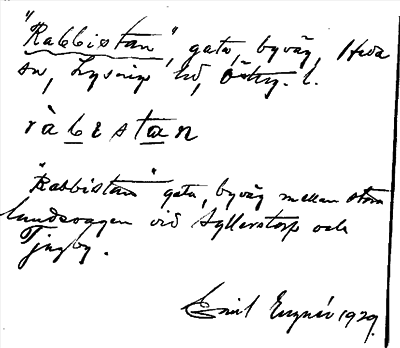 "Rabbistan", gata, byväg, Heda
sn, Lysings hd, Östg. l.
ràbestan
"Rabbistan" gata, byväg mellan stora
landsvägen vid Syllerstorp och
Tjugby.
Emil 1929.